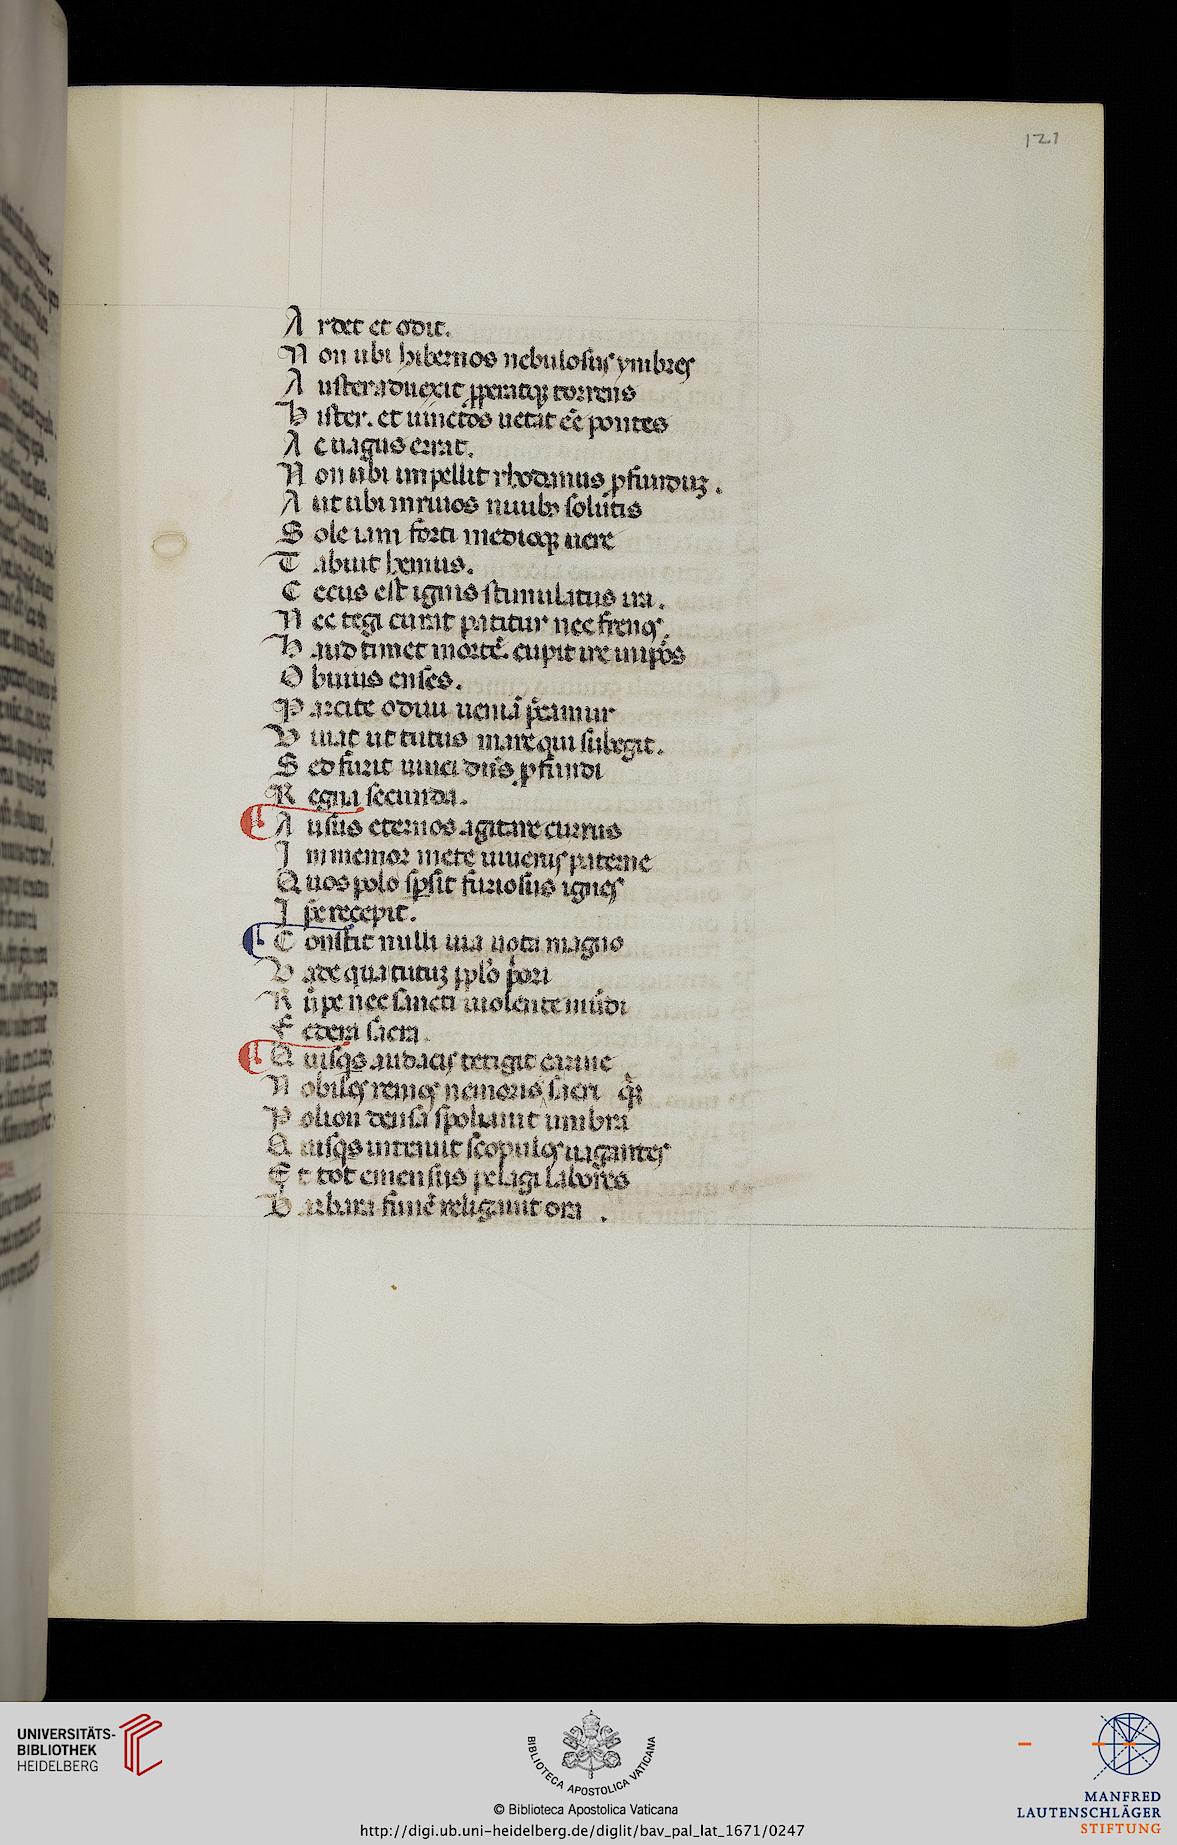 121
A rdet et odit.
N on ubi hibernos nebulosus ymbres
A uster aduexit ꝓperatqꝫ torrens
H ister. et uinctos uetat eē pontes
A c uagus errat.
N on ubi impellit rhodanus ꝓfunduꝫ.
A ut ubi in riuos niuibꝫ solutis
S ole iam forti medioqꝫ uere
T abuit hemus.
C ecus est ignis stimulatus ira.
N ec regi curat patitur nec frenos.
H aud timet mortē. cupit ire in ipos
O buius enses.
P arcite o diui ueniā p̄camur
V iuat ut tutus mare qui subegit.
S ed furit uinci dn̄s ꝓfundi
R egna secunda.
A usus eternos agitare currus
I nmemor mete iuuenis paterne
Q uos polo spsit furiosus ignes
I pse recepit.
C onstit nulli uia nota magno
V ade qua tutuꝫ pplo pori
R upe nec sancti uiolente mūdi
F edera sacra.
Q uisqs audacis tetigit carine
N obiles remos nemoris sacri qͣ
P olion densa spoliauit umbra
Q uisqs intrauit scopulos uagantes
E t tot emensus pelagi labores
B arbara funē religauit ora.
UNIVERSITÄTS-
BIBLIOTHEK
HEIDELBERG
BIBLIOTECA APOSTOLICA VATICANA
© Biblioteca Apostolica Vaticana
http://digi.ub.uni-heidelberg.de/diglit/bav_pal_lat_1671/0247
MANFRED
LAUTENSCHLÄGER
STIFTUNG